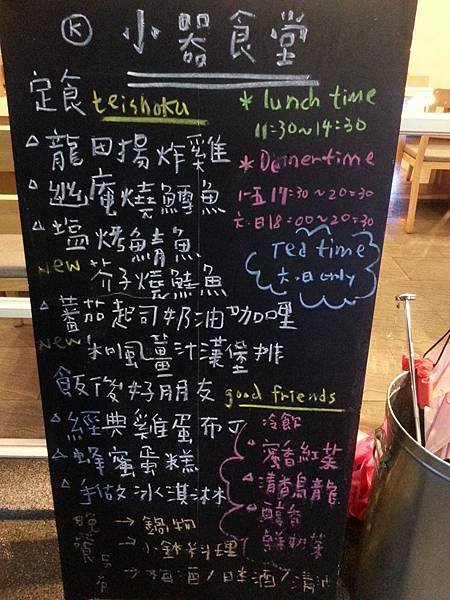 K 小器食堂
定食 teishoku
* lunch time
11:30~14:30
△龍田揚炸雞
* Dennertime
△幽庵燒鱈魚
一-五 17:30~20:30
六.日18:00~20:30
△塩烤鯖魚
Tea time
六.日 only
new 芥子燒鮭魚
△蕃茄起司奶油咖哩
new 和風薑汁漢堡排
飯後好朋友 good friends
△經典雞蛋布丁
△蜂蜜蛋糕
△手做冰淇淋
冷飲
△蜜香紅茶
△清香烏龍
△醇香
鮮奶茶
晚餐 → 鍋物
→ 小鉢料理
→ 梅酒/日本酒/清酒